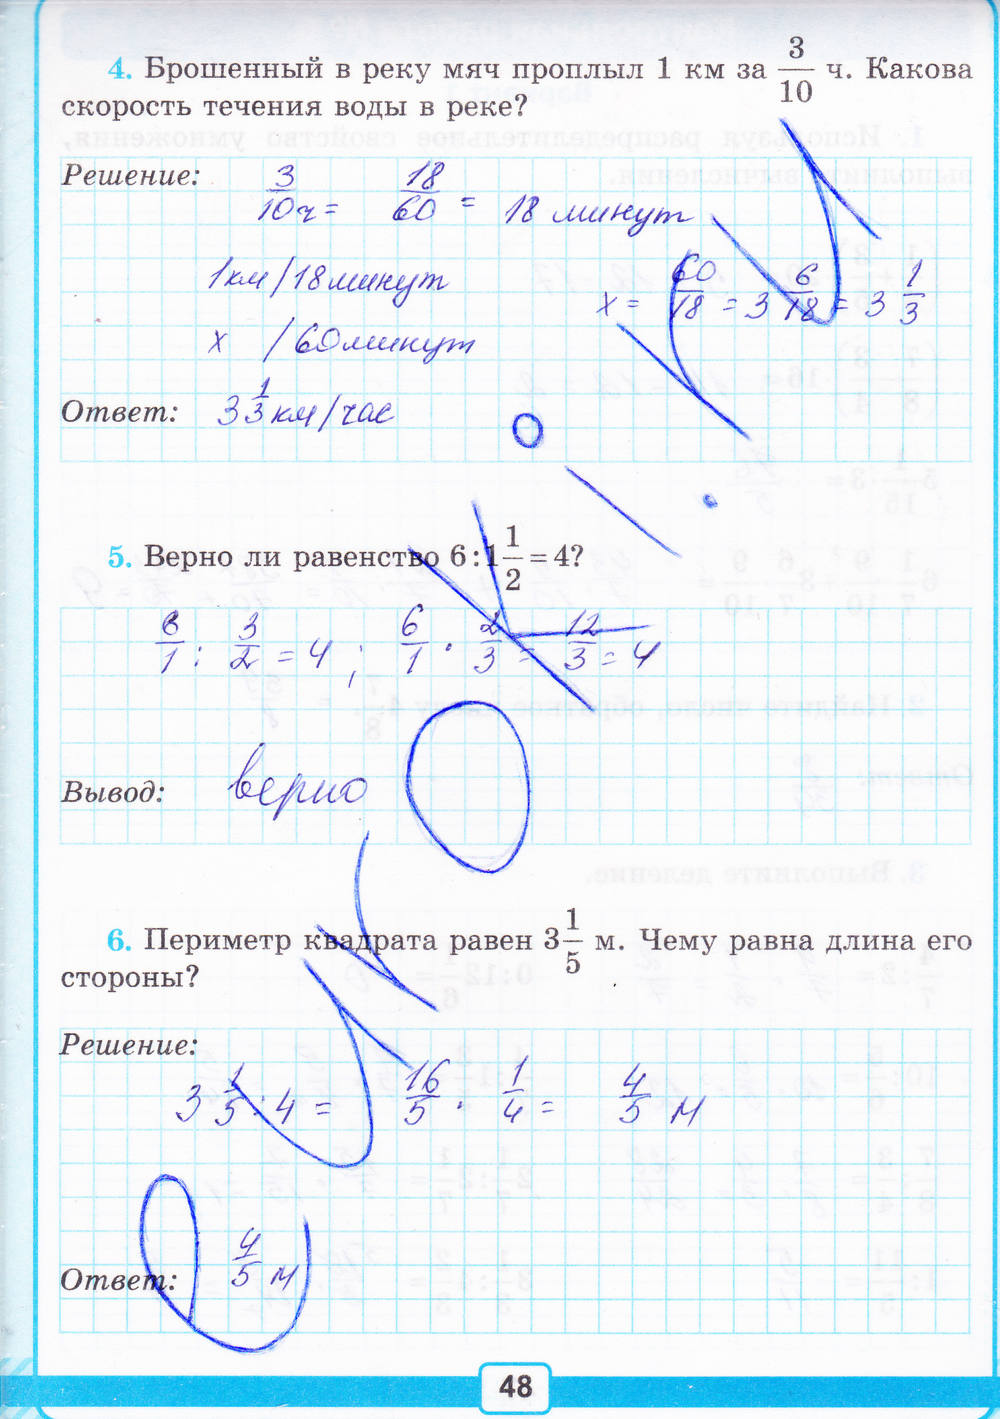 4. Брошенный в реку мяч проплыл 1 км за 3/10 ч. Какова
скорость течения воды в реке?
Решение: 3/10 ч = 18/60 = 18 минут
1 км / 18 минут
x = 60/18 = 3 6/18 = 3 1/3
x / 60 минут
Ответ: 3 1/3 км/час
5. Верно ли равенство 6 : 1 1/2 = 4?
6/1 : 3/2 = 4 ; 6/1 · 2/3 = 12/3 = 4
Вывод: верно
6. Периметр квадрата равен 3 1/5 м. Чему равна длина его
стороны?
Решение:
3 1/5 : 4 = 16/5 · 1/4 = 4/5 м
Ответ: 4/5 м
48